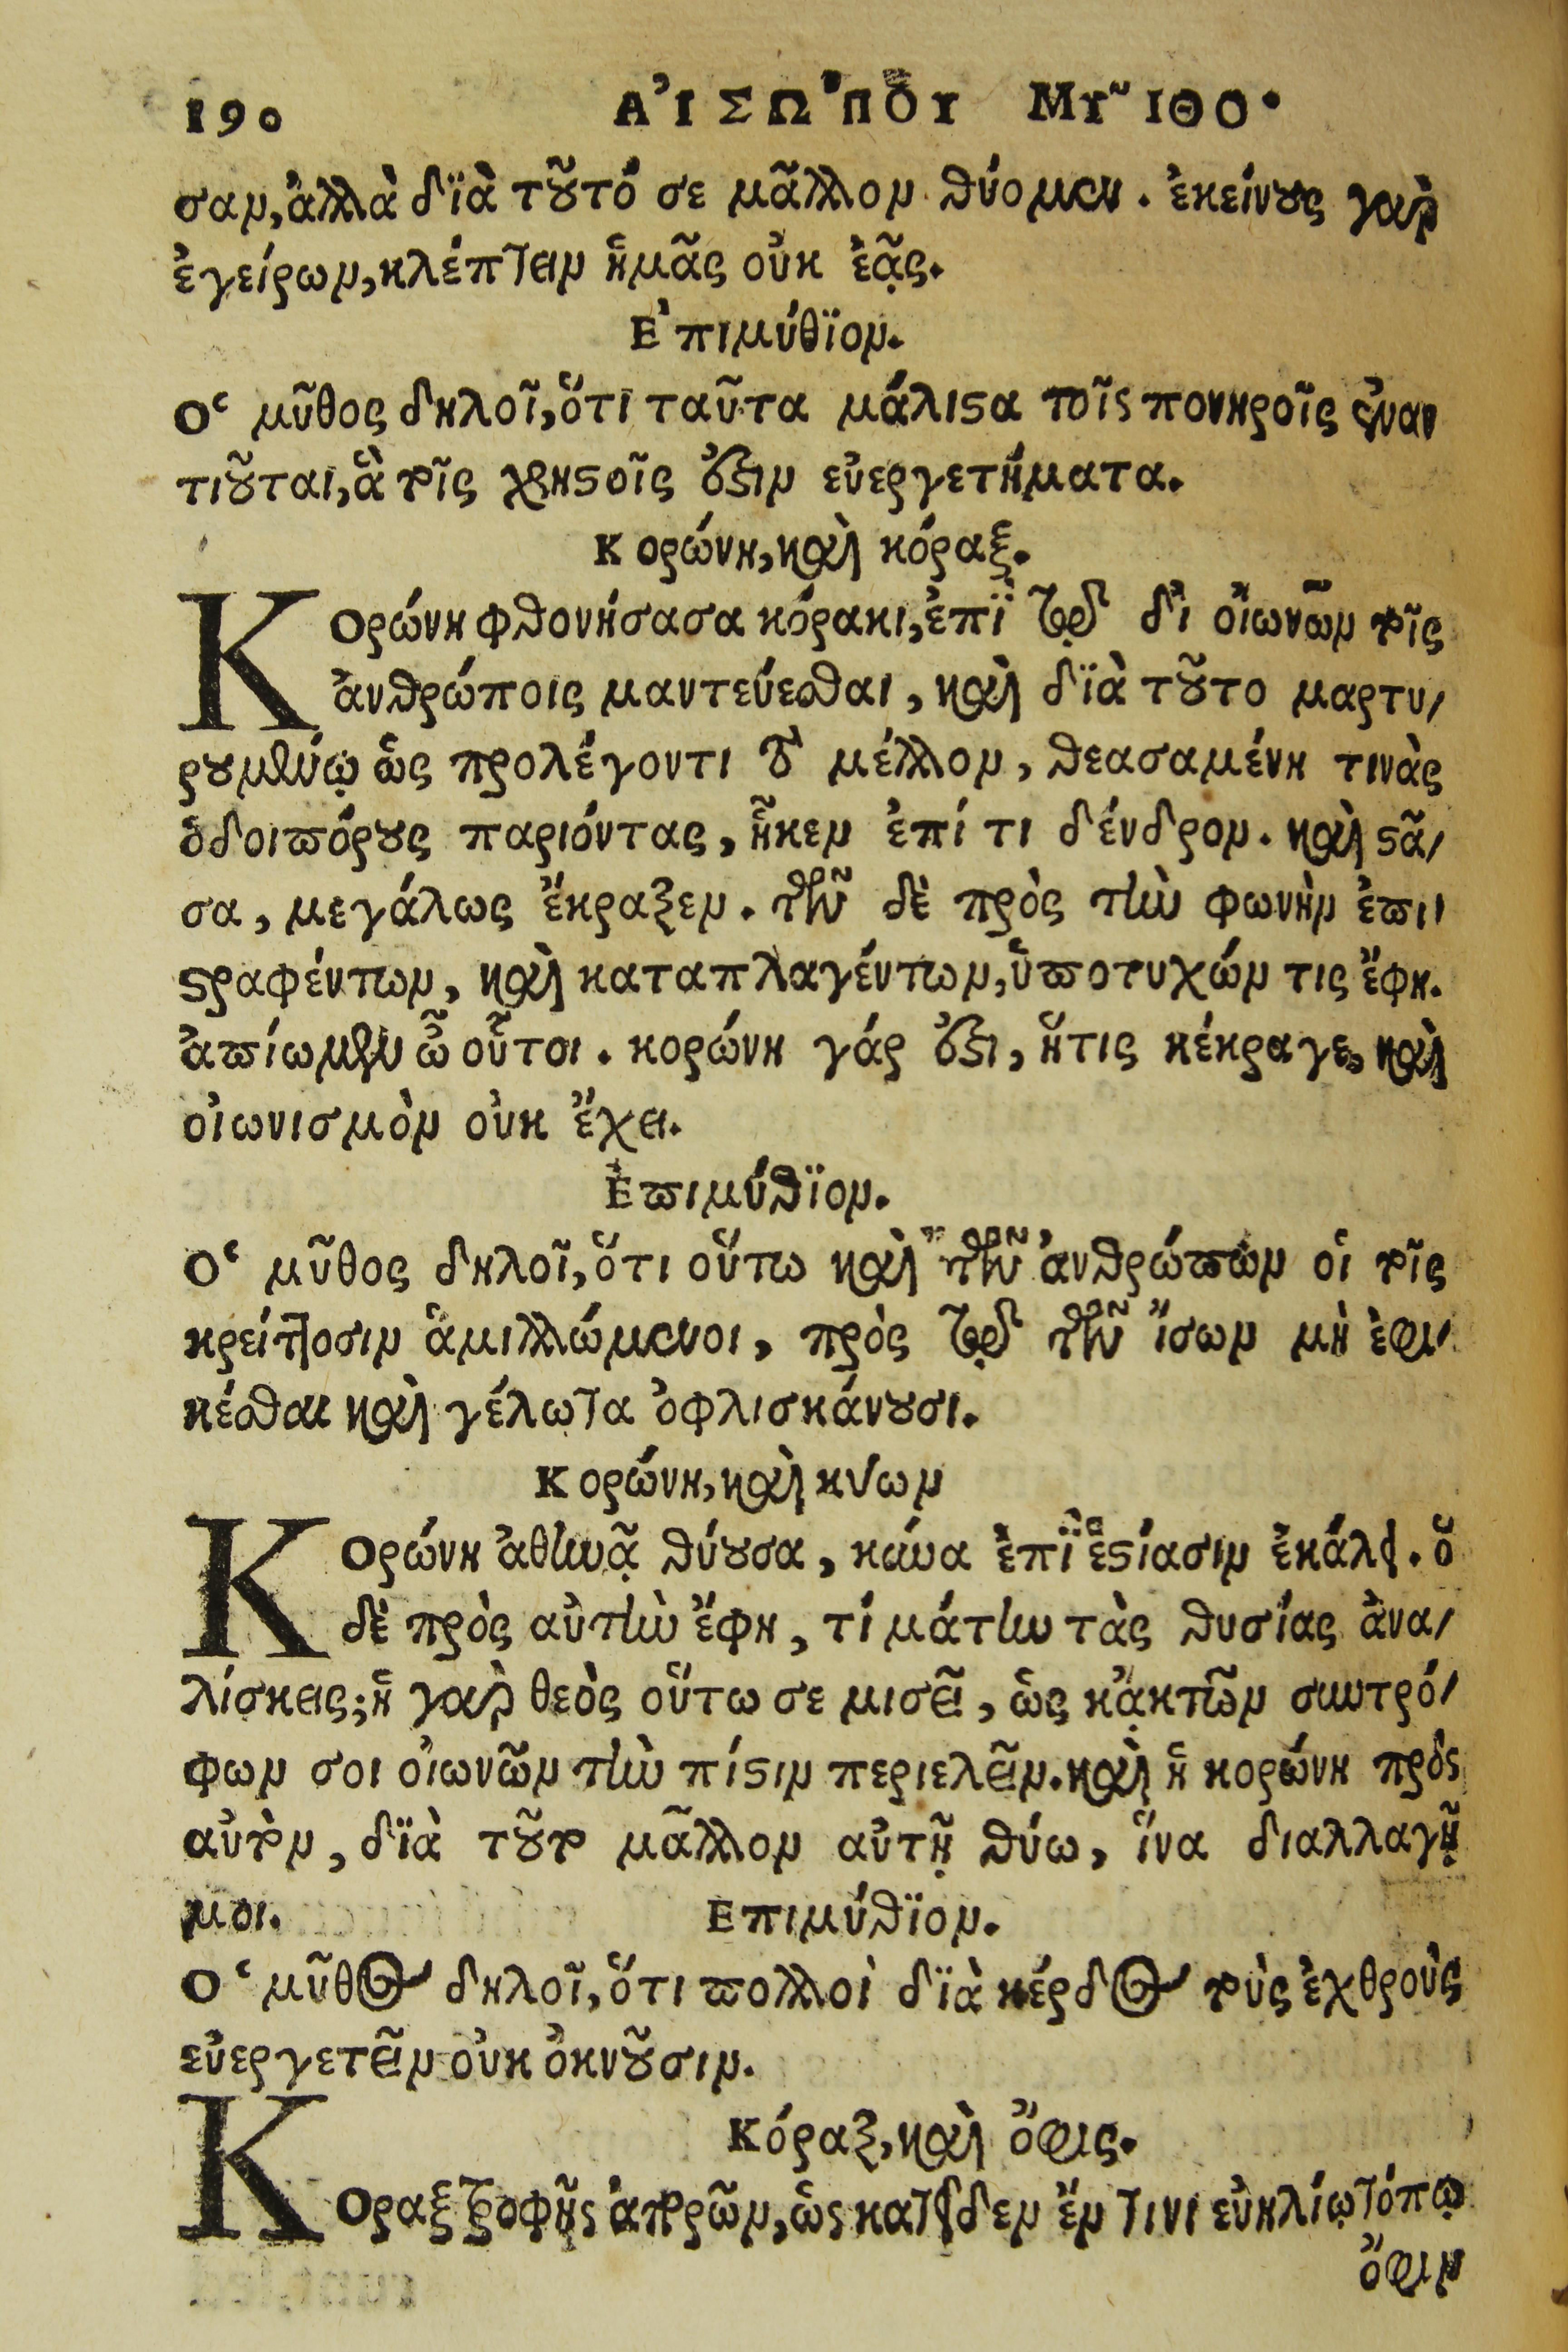 190 ΑἸΣΩ'ΠΟΥ ΜΥ͂ΙΘΟ.
σαν, ἀλλὰ δϊὰ τοῦτό σε μᾶλλον θύομεν. ἐκείνους γαρ
ἐγείρων, κλέπτειν ἡμᾶς οὐκ ἐᾷς.
Ε'πιμύθϊον.
Ο‘ μῦθος δηλοῖ, ὅτι ταῦτα μάλιστα τοῖς πονηροῖς ἐναν
τιοῦται, ἃ τοῖς χρηστοῖς ἐστιν εὐεργετήματα.
Κορώνη, καὶ κόραξ.
ΚΟρώνη φθονήσασα κόρακι, ἐπῒ τῷ δι' οἰωνῶν τοῖς
ἀνθρώποις μαντεύεσθαι, καὶ δϊὰ τοῦτο μαρτυ/
ρουμένῳ ὡς προλέγοντι τὸ μέλλον, θεασαμένη τινὰς
ὁδοιπόρους παριόντας, ἧκεν ἐπί τι δένδρον. καὶ στᾶ/
σα, μεγάλως ἔκραξεν. τῶν δὲ πρὸς τὴν φωνὴν ἐπι/
στραφέντων, καὶ καταπλαγέντων, ὑποτυχών τις ἔφη.
ἀπίωμεν ὦ οὗτοι. κορώνη γάρ ἐστι, ἥτις κέκραγε, καὶ
οἰωνισμὸν οὐκ ἔχει.
Ἐπιμύθϊον.
Ο‘ μῦθος δηλοῖ, ὅτι οὕτω καὶ τῶν ἀνθρώπων οἱ τοῖς
κρείττοσιν ἁμιλλώμενοι, πρὸς τῷ τῶν ἴσων μὴ ἐφι/
κέσθαι καὶ γέλωτα ὀφλισκάνουσι.
Κορώνη, καὶ κύων
ΚΟρώνη ἀθηνᾷ θύουσα, κύνα ἐπῒ ἑστίασιν ἐκάλει. ὅ
δὲ πρὸς αὐτὴν ἔφη, τί μάτην τὰς θυσίας ἀνα/
λίσκεις; ἡ γαρ θεὸς οὕτω σε μισεῖ, ὡς κᾀκτῶν συντρό/
φων σοι οἰωνῶν τὴν πίστιν περιελεῖν. καὶ ἡ κορώνη πρὸς
αὐτὸν, δϊὰ τοῦτο μᾶλλον αὐτῇ θύω, ἵνα διαλλαγῇ
μοι. Επιμύθϊον.
Ο‘ μῦθος δηλοῖ, ὅτι πολλοὶ δϊὰ κέρδος τοὺς ἐχθροὺς
εὐεργετεῖν οὐκ ὀκνοῦσιν.
Κόραξ, καὶ ὄφις.
ΚΟραξ τροφῆς ἀπορῶν, ὡς κατεῖδεν ἔν τινι εὐηλίῳ τόπῳ
ὄφιν